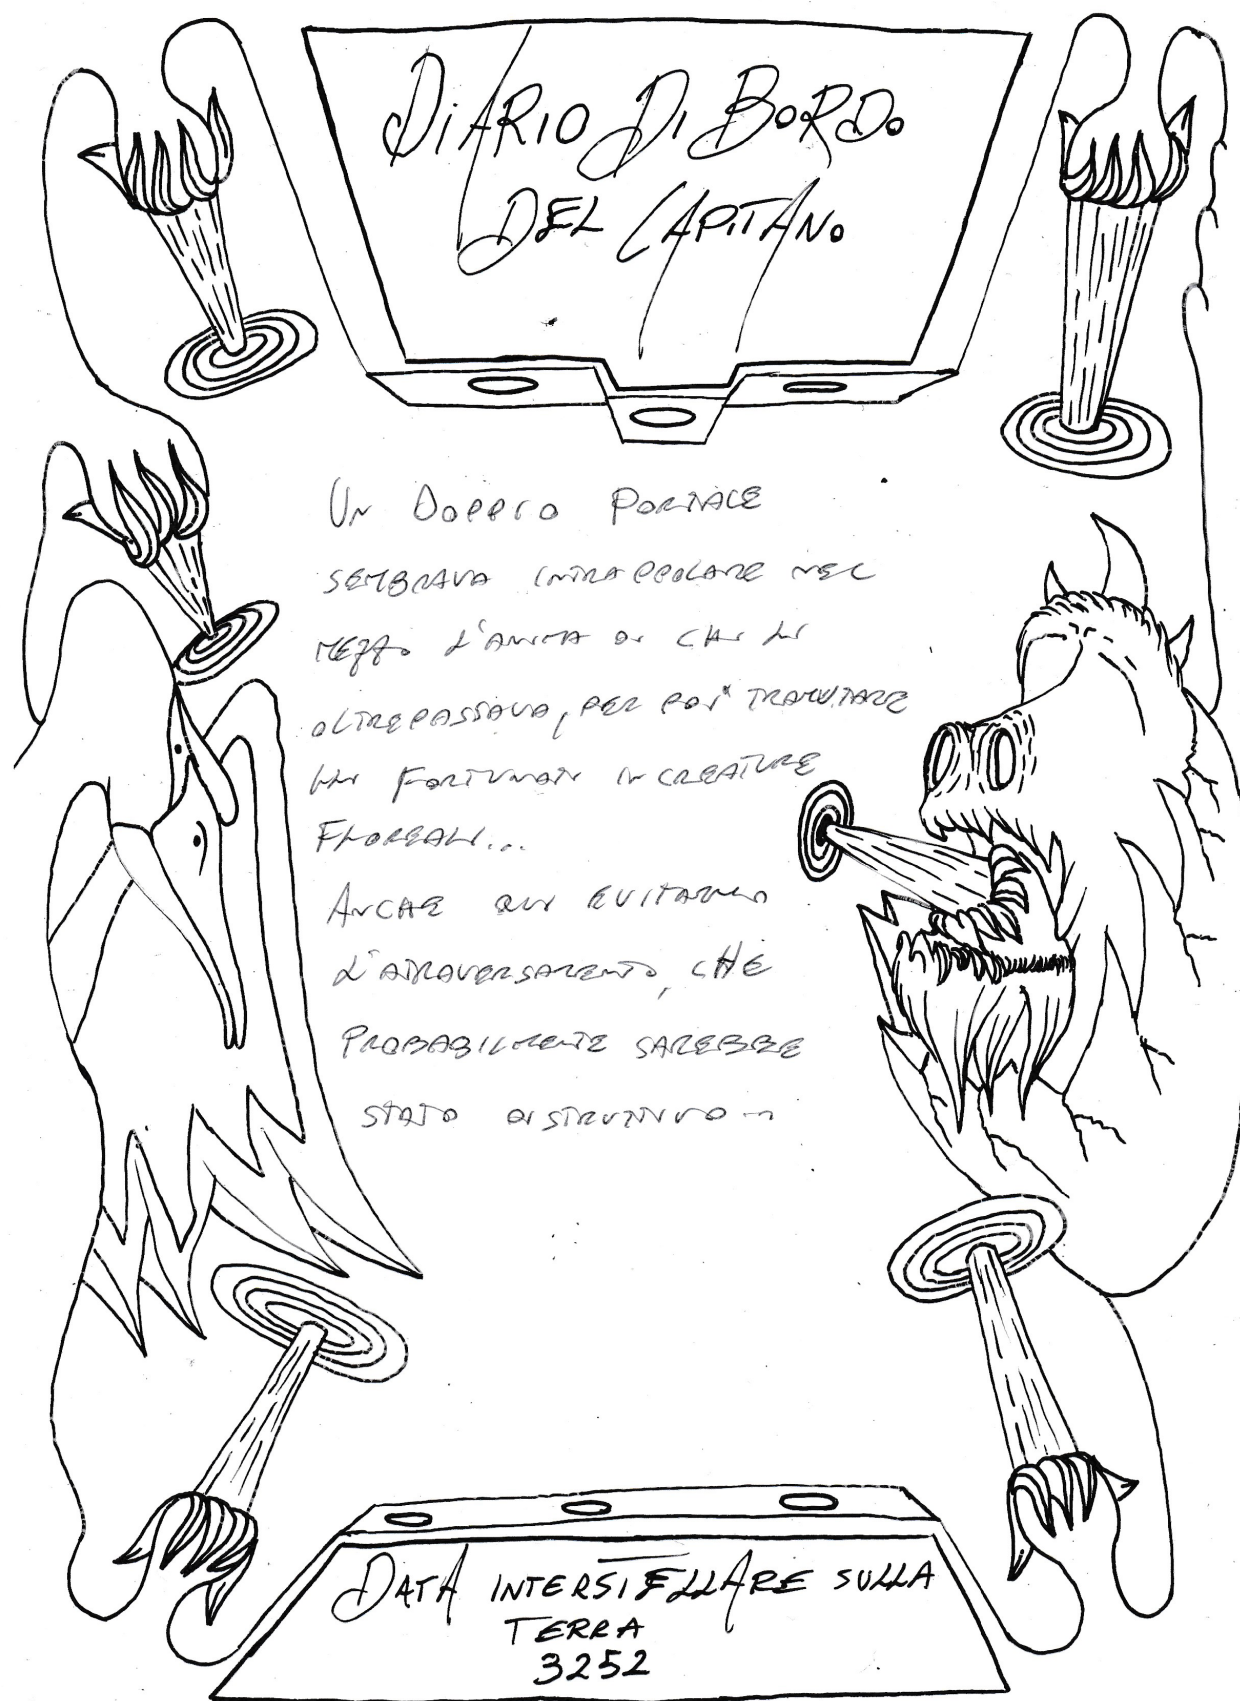 DIARIO DI BORDO
DEL CAPITANO
UN DOPPIO PORTALE
SEMBRAVA INTRAPPOLARE NEL
MEZZO L'ANIMA DI CHI LI
OLTREPASSAVA, PER POI TRAMUTARE
GLI FORTUNATI IN CREATURE
FLOREALI...
ANCHE QUI EVITAMMO
L'ATTRAVERSAMENTO, CHE
PROBABILMENTE SAREBBE
STATO DISTRUTTIVO
DATA INTERSTELLARE SULLA
TERRA
3252